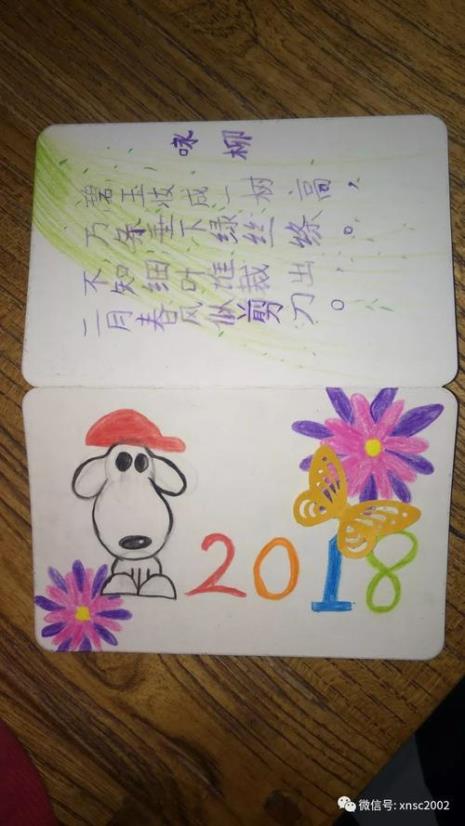 咏柳
碧玉妆成一树高，
万条垂下绿丝绦。
不知细叶谁裁出，
二月春风似剪刀。
2018
微信号: xnsc2002